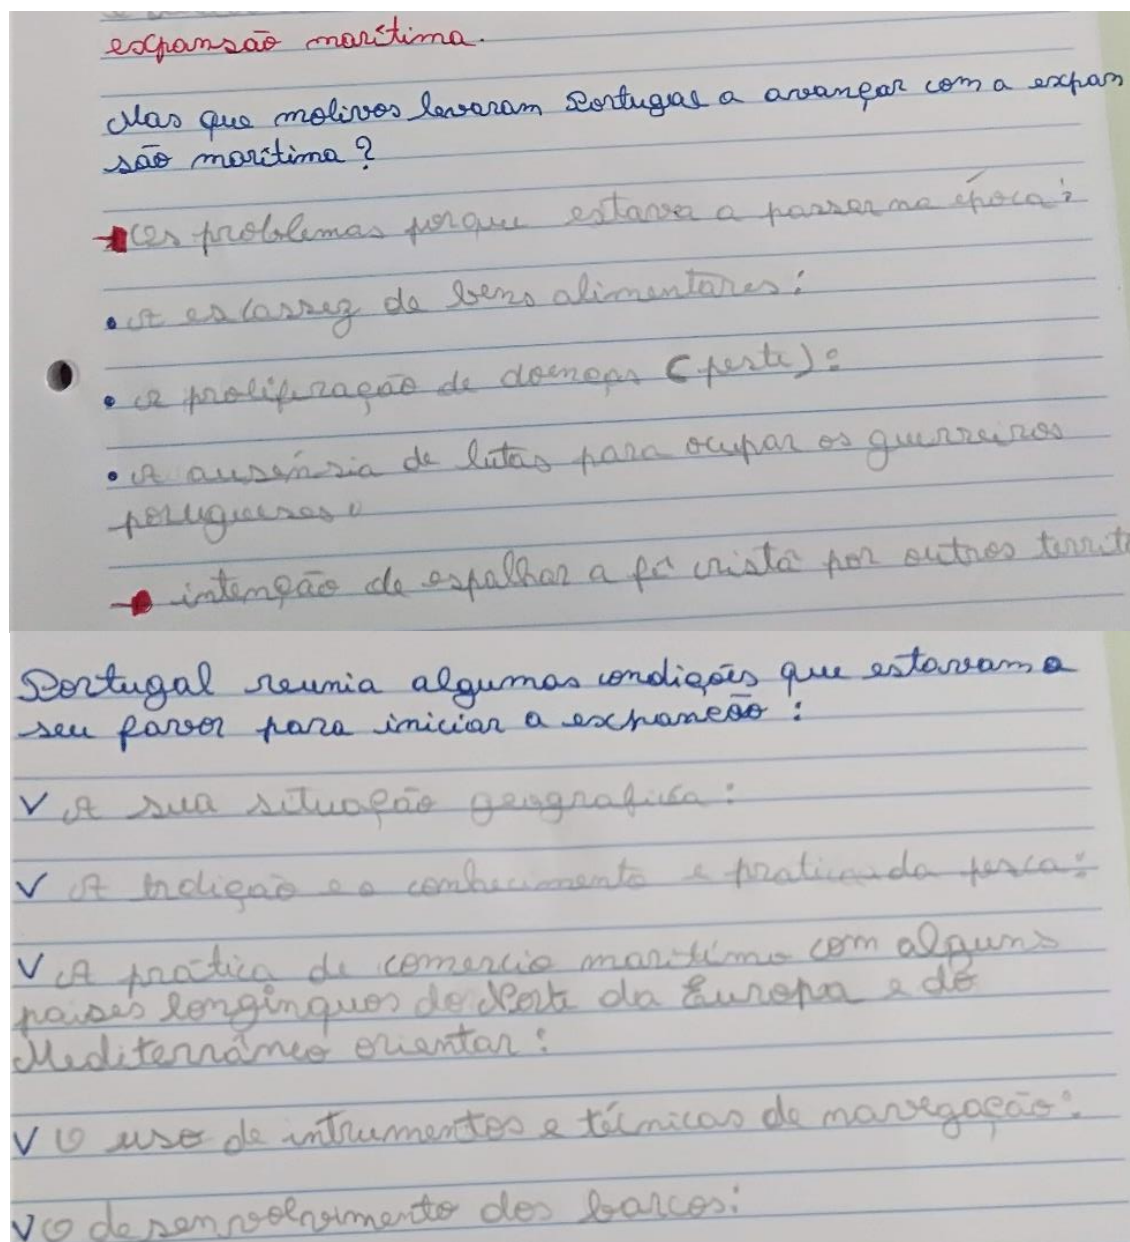 expansão marítima.
Mas que motivos levaram Portugal a avançar com a expan
são marítima?
Os problemas porque estava a passar na época:
• A escassez de bens alimentares;
• A proliferação de doenças (peste);
• A ausênsia de lutas para ocupar os guerreiros
portugueses
intenção de espalhar a fé cristã por outros territ
Portugal reunia algumas condições que estavam a
seu favor para iniciar a expansão:
V A sua situação geografica;
V A tradição e o conhecimento e pratica da pesca;
V A prática de comercio marítimo com alguns
países longínquos do Norte da Europa e do
Mediterrâneo orientar;
V O uso de intrumentos e técnicas de navegação;
V O desenvolvimento dos barcos;